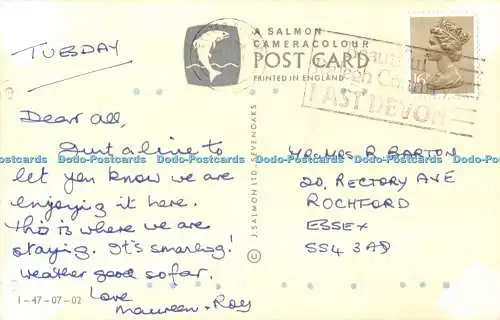 TUESDAY
Dear all,
Just a line to
let you know we are
enjoying it here.
This is where we are
staying. It's smashing!
weather good so far.
Love
Maureen + Roy
1-47-07-02
A SALMON
CAMERACOLOUR
POST CARD
PRINTED IN ENGLAND
© J. SALMON LTD., SEVENOAKS
EAST DEVON
MRS R BARTON
20, RECTORY AVE
ROCHFORD
ESSEX
SS4 3AD
Dodo-Postcards Dodo-Postcards Dodo-Postcards Dodo-Postcards Dodo-Postcards